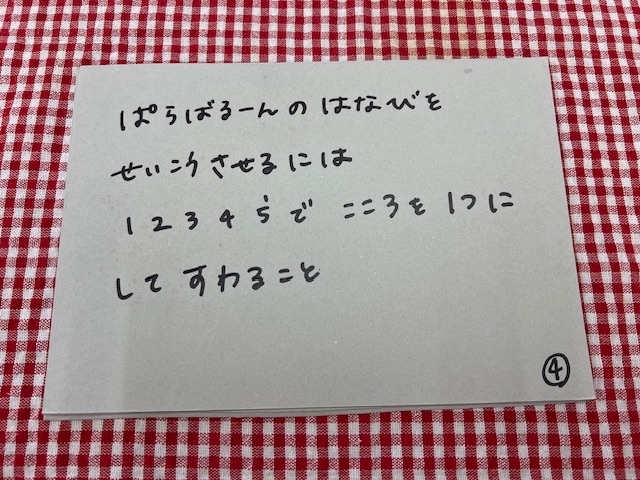 ぱらばるーんのはなびを
せいこうさせるには
12345で こころを1つに
して すわること
④